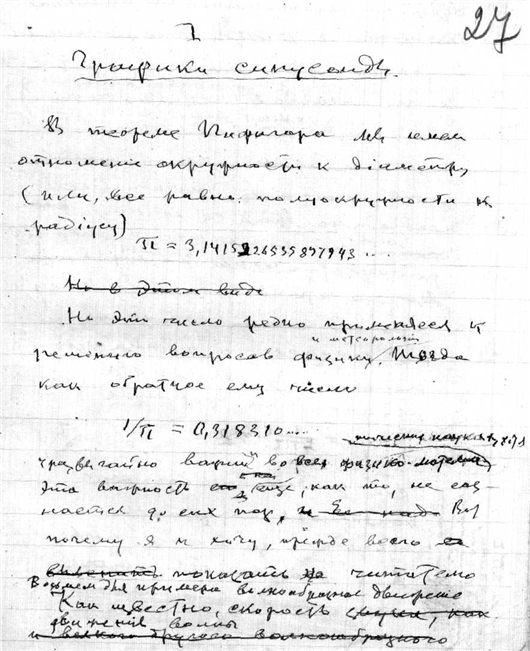 27
1
Графики синусоиды.
В теореме Пифагора мы имеем
отношение окружности к діаметру
(или, все равно полуокружности к
радіусу)
π = 3,1415926535897943...
Но в этом виде
Но это число редко применяется к
и метеорологіи
решенію вопросов физики, тогда
как обратное ему число
1/π = 0,318310....
чрезвычайно важно во всех физико-матема
Эта важность еще, как то, не соз
нается до сих пор, Вот
почему я и хочу, прежде всего
показать читателю
Возьмем для примера волнообразное движение
Как известно, скорость звука, как
движения волны
и всякого другого волнообразного